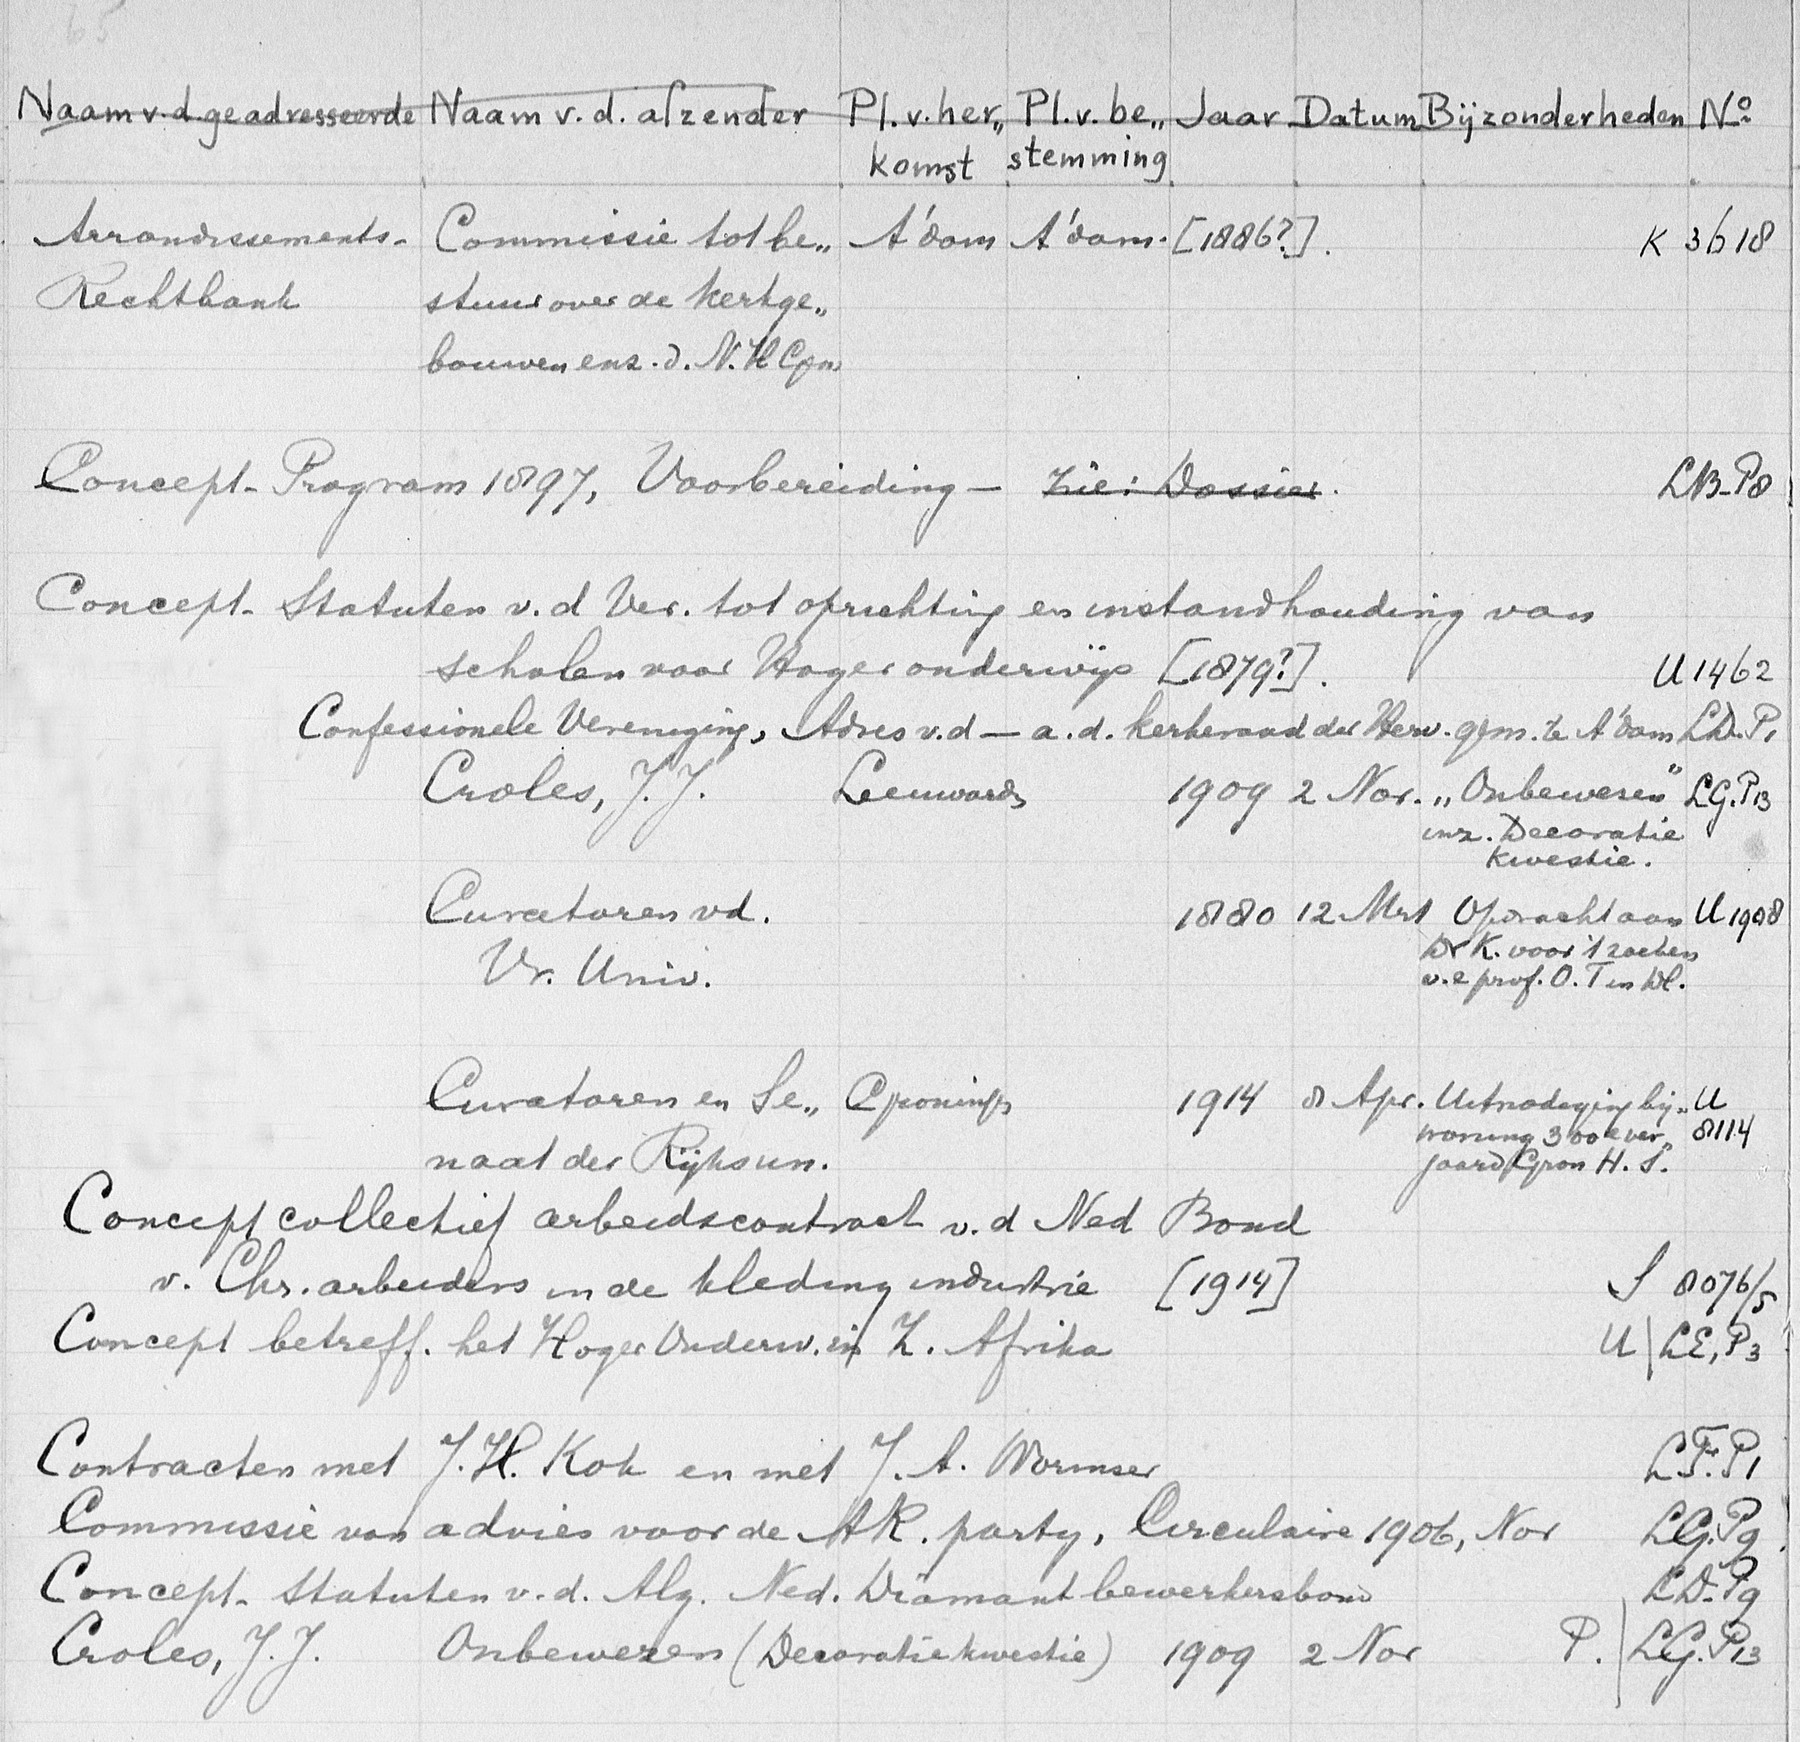 65
Naam v. d. geadresseerde Naam v. d. afzender Pl. v. her„ Pl. v. be„ Jaar Datum Bijzonderheden No
komst stemming
Arrondissements- Commissie tot be„ A'dam A'dam. [1886?]. K 3618
Rechtbank stuur over de kerkge„
bouwen enz. d. N. H Gem
Concept- Program 1897, Voorbereiding — zie: Dossier. LB-P8
Concept- Statuten v. d Ver. tot oprichting en instandhouding van
scholen voor Hoger onderwijs [1879?]. U 1462
Confessionele Vereniging, Adres v.d — a. d. kerkeraad der Herv. gem. te A'dam LD. P1
Croles, J. J. Leeuward. 1909 2 Nov. „Onbewezen" LG. P13
inz. Decoratie
kwestie.
Curatoren vd. 1880 12 Mrt Opdracht aan U 1908
Vr. Univ. Dr K. voor 't zoeken
v. e prof. O. T in Dl.
Curatoren en Se„ Groningn 1914 8 Apr. Uitnodiging bij„ U
naat der Rijksun. woning 300e ver„ 8114
jaard Gron H. S.
Concept collectief arbeidscontract v. d Ned Bond
v. Chr. arbeiders in de kleding industrie [1914] S 8076/5
Concept betreff. het Hoger Onderw. in Z. Afrika U | LE, P3
Contracten met J. H. Kok en met J. A. Wormser LF. P1
Commissie van advies voor de AR. party, Circulaire 1906, Nov LG. P9
Concept- Statuten v. d. Alg. Ned. Diamantbewerkersbond LD- P9
Croles, J. J. Onbewezen (Decoratiekwestie) 1909 2 Nov P. | LG. P13